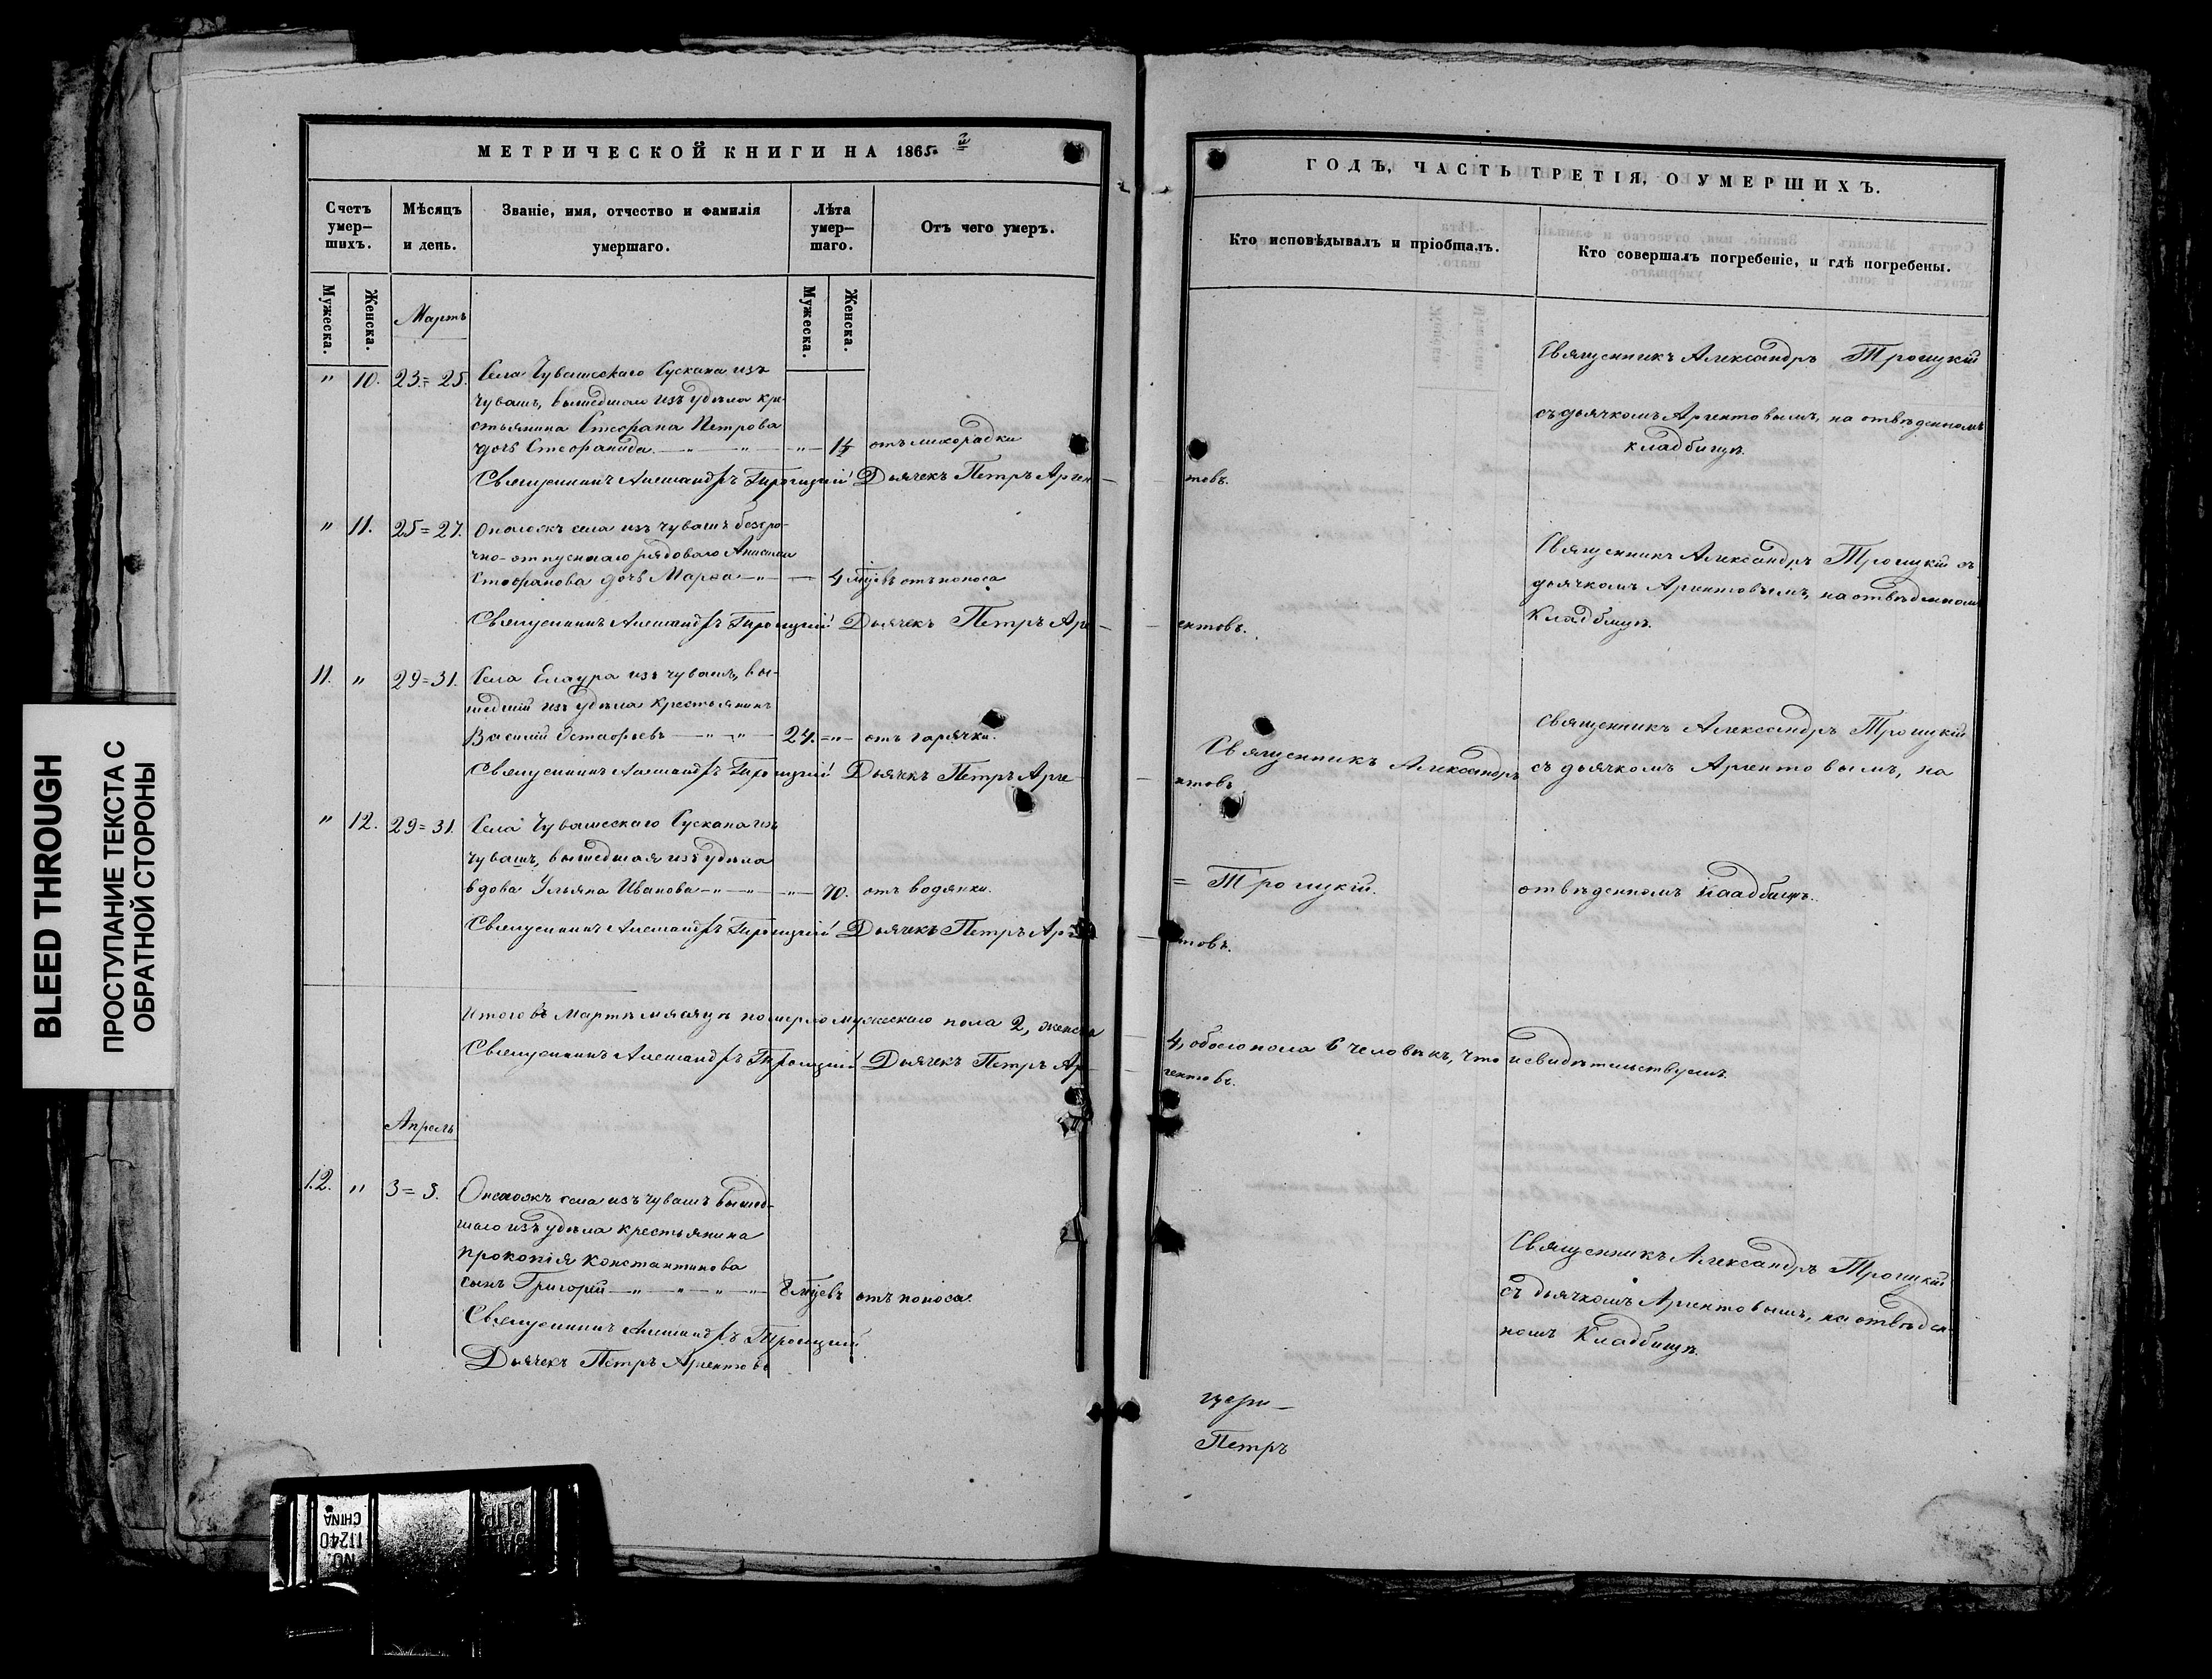 BLEED THROUGH
ПРОСТУПАНИЕ ТЕКСТА С
ОБРАТНОЙ СТОРОНЫ
МЕТРИЧЕСКОЙ КНИГИ НА 1865й
Счетъ умер–шихъ.
Мѣсяцъ и день.
Званіе, имя, отчество и фамилія умершаго.
Лѣта умер–шаго.
Отъ чего умеръ.
Мужеска.
Женска.
Мужеска.
Женска.
Мартъ
" 10. 23=25. Села Чувашскаго Сускана изъ
чувашъ, вышедшаго изъ удѣла кре-
стьянина Стефана Петрова
дочь Стефанида " отъ лихорадки
Священникъ Александръ Троицкій Дьячекъ Петръ Арген-
" 11. 25=27. Онагожъ села изъ чувашъ безсро-
чно-отпускнаго рядоваго
Стефанова дочь Марѳа 4 мцевъ отъ поноса
Священникъ Александръ Троицкій Дьячекъ Петръ Арг-
11. " 29=31. Села Елаура изъ чувашъ, вы-
шедшій изъ удѣла крестьянинъ
Василій Остафьевъ 24. " отъ горячки.
Священникъ Александръ Троицкій Дьячекъ Петръ Арге-
" 12. 29=31. Села Чувашскаго Сускана изъ
чувашъ, вышедшая изъ удѣла
вдова Ульяна Иванова " 70. отъ водянки.
Священникъ Александръ Троицкій Дьячекъ Петръ Арг
Итого въ Мартѣ мѣсяцѣ померло мужескаго пола 2, женска
Священникъ Александръ Троицкій Дьячекъ Петръ Ар-
Апрель
12. " 3=5. Онагожъ села изъ чувашъ вышед-
шаго изъ удѣла крестьянина
Прокопія Константинова
сынъ Григорій 8 мцевъ отъ поноса.
Священникъ Александръ Троицкій
Дьячекъ Петръ Аргентовъ
ГОДЪ, ЧАСТЬ ТРЕТІЯ, О УМЕРШИХЪ.
Кто исповѣдывалъ и пріобщалъ.
Кто совершалъ погребеніе, и гдѣ погребены.
Священникъ Александръ Троицкій
съ дьячкомъ Аргентовымъ, на отвѣденномъ
кладбищѣ.
товъ.
Священникъ Александръ Троицкій съ
дьячкомъ Аргентовымъ, на отвѣденномъ
Кладбищѣ.
ентовъ.
Священникъ Александръ Троицкій
Священникъ Александръ съ дьячкомъ Аргентовымъ, на
нтовъ
= Троицкій. отвѣденномъ Кладбищѣ.
товъ.
4, обоего пола 6 человѣкъ, что и свидѣтельствуемъ.
гентовъ.
Священникъ Александръ Троицкій
съ дьячкомъ Аргентовымъ, на отвѣден-
номъ Кладбищѣ.
Петръ
NO.
11240
CHINA